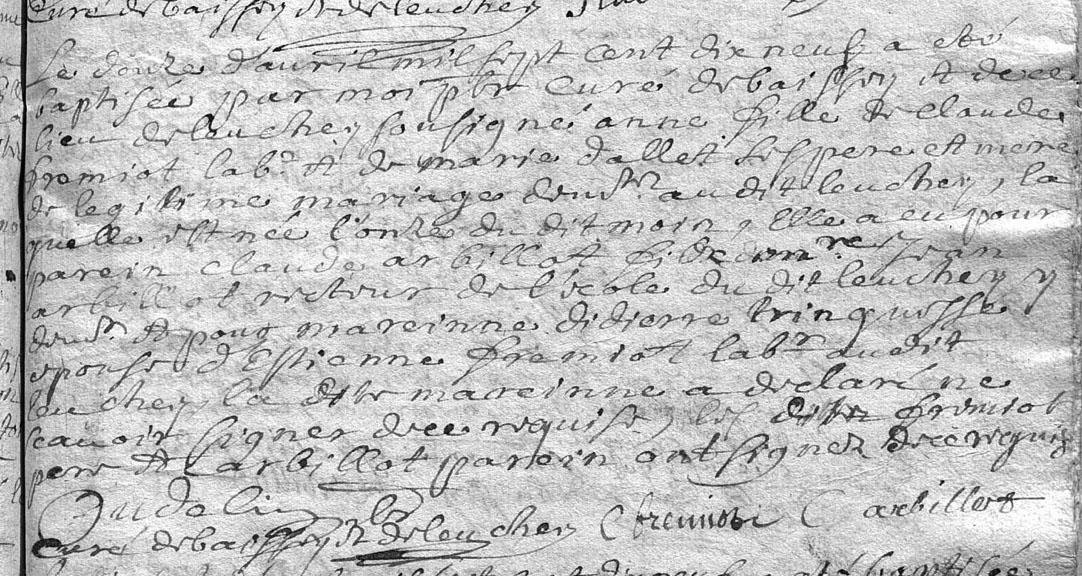 Curé de baissey et de leuchey
Le douze d'auril mil sept cent dixneuf a été
baptisée par moi pbr Curé de baissey et de ce
lieu de leuchey sousigné anne fille de claude
fremiot labr et de marie dallet ses pere et mere
de legitime mariage demt au dit leuchey, la
quelle est née l'onze du dit mois, Elle a eu pour
parein claude arbillot fils de mre Jean
arbillot recteur de l'école du dit leuchey y
demt et pour mareinne didierre trinquesse
epouse d'Estienne fremiot labr audit
leuchey, la dite mareinne a declaré ne
scauoir signer de ce requise, les dits fremiot
pere et C arbillot parein ont signez de ce requis
Gudelin
Curé de baissey et de leuchey C fremiot C arbillot